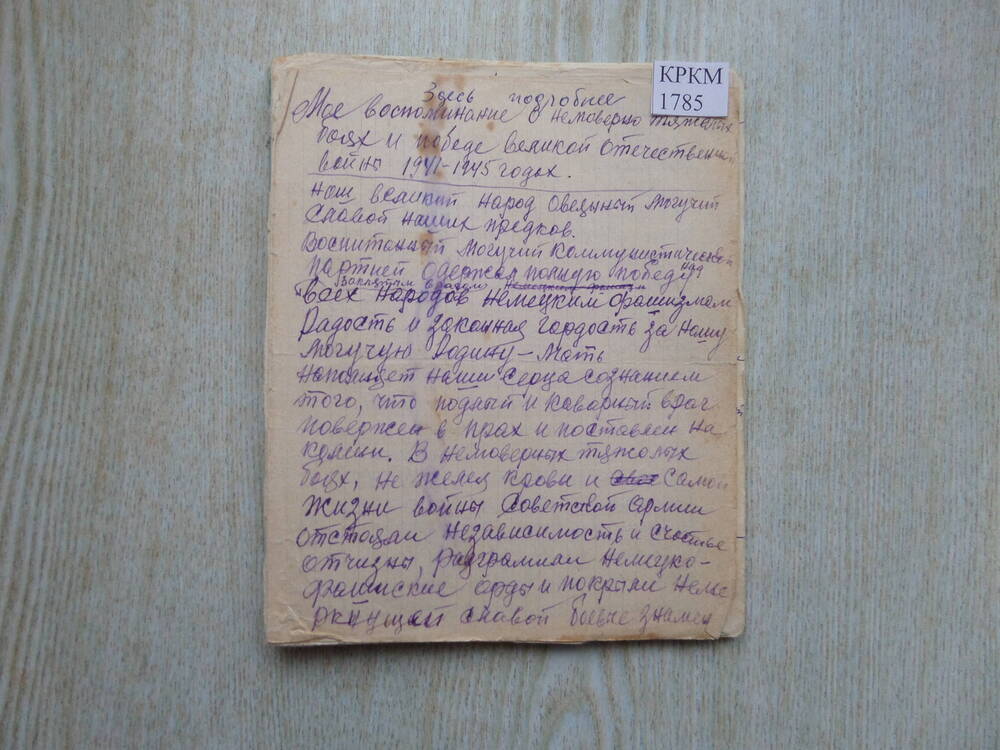 КРКМ
1785
Здесь подробнее
Мое воспоминание о немоверно тяжолых
боях и победе великой отечественной
войны 1941-1945 годах.
наш великий народ Оведыный Могучий
Славой наших предков.
Воспитанный Могучий Коммунистической
партией Одержал полную победу над
Заклятым врагом
Всех Народов Немецким фашизмом
Радость и законная гордость за нашу
Могучую Родину-Мать
наполняет наши Серца сознанием
того, что подлый и каварный враг
повержен в прах и поставлен на
колени. В немоверных тяжолых
боях, не желея крови и самой
жизни войны Советской армии
отстояли независимость и счастье
отчизны, разграмили немецко-
фашиские орды и покрыли неме
ркнущей славой боевые знамен